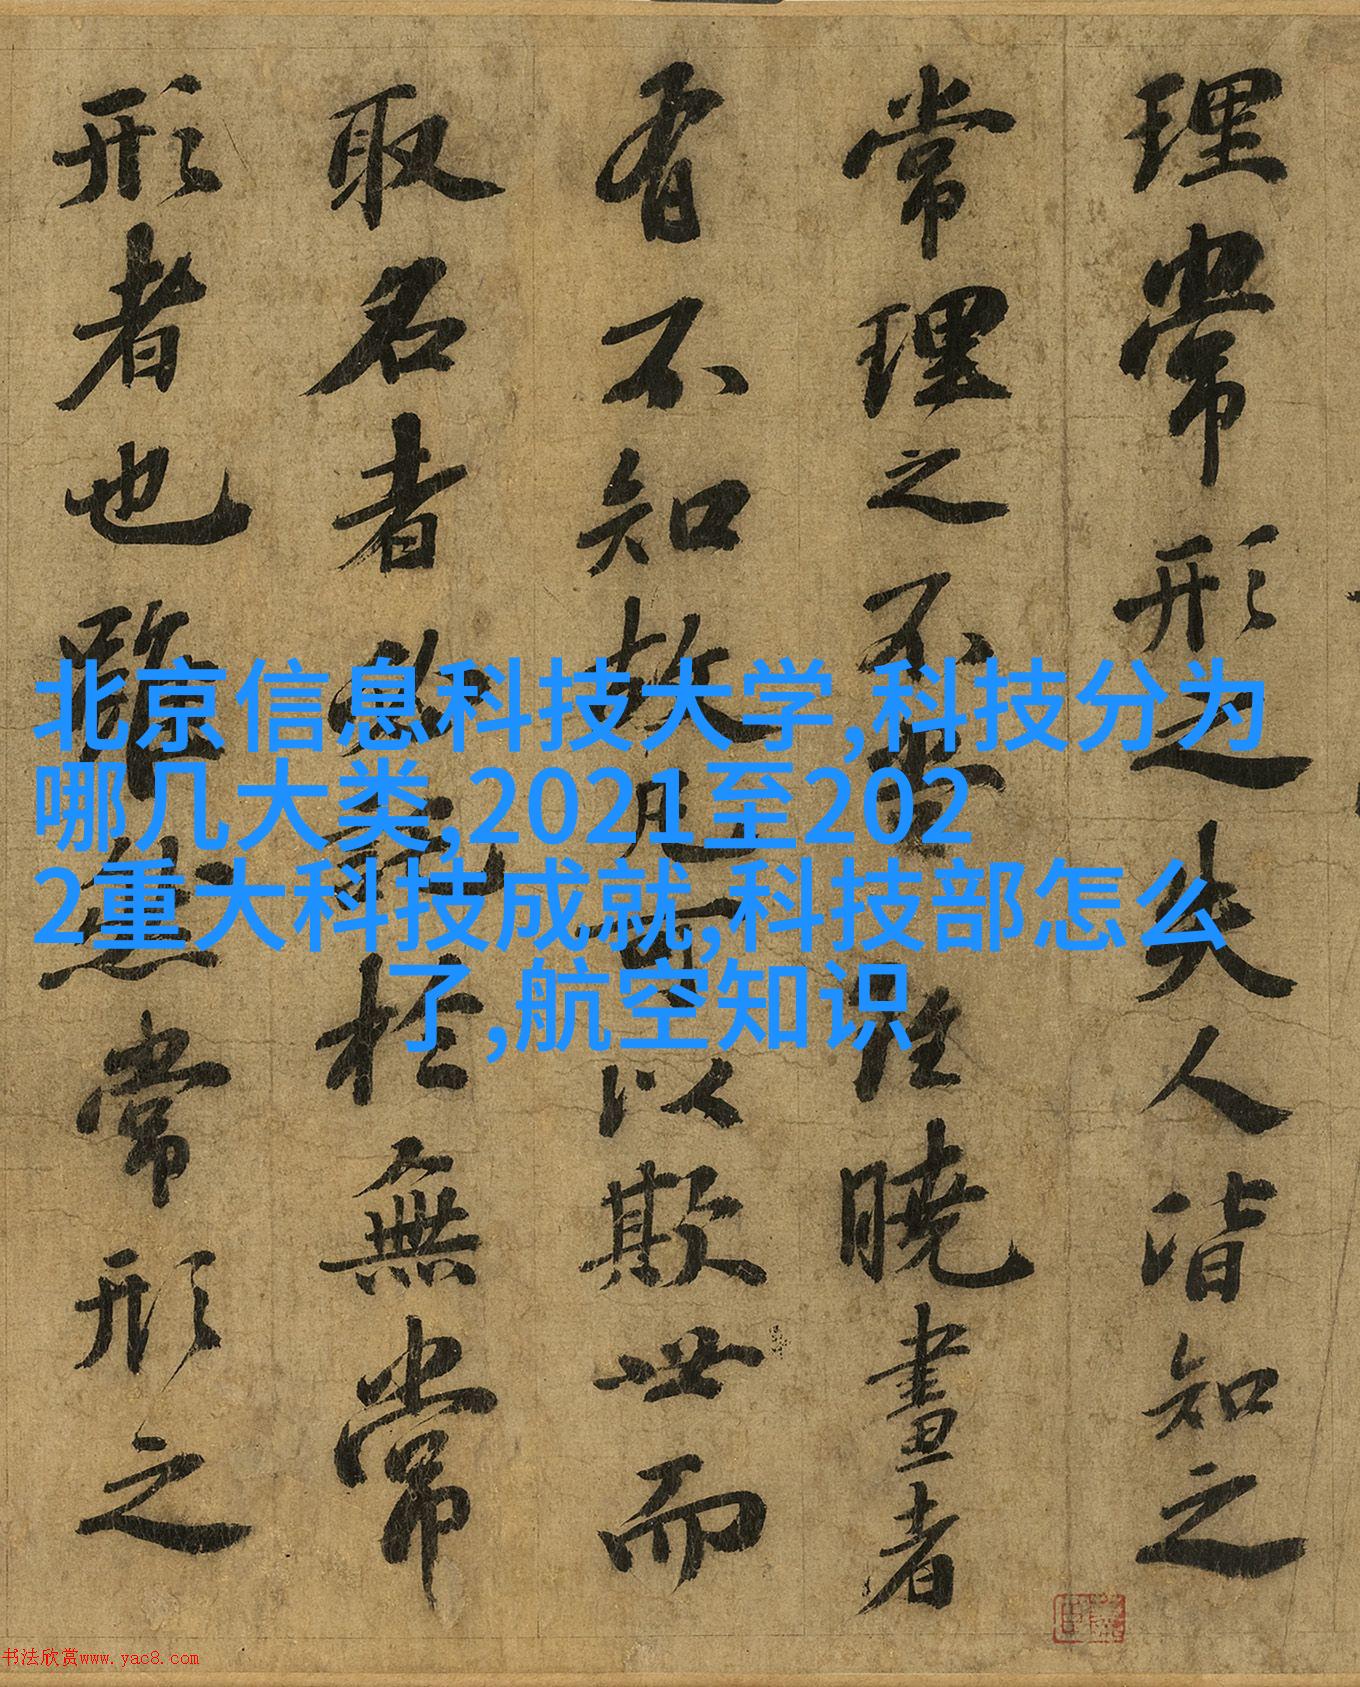 理常形之失人皆知之
常理之不當雖曉畫者
有不知故凡可以欺世而
取名者必託於無常
形者也雖然常形之
北京信息科技大学,科技分为
哪几大类,2021至202
2重大科技成就,科技部怎么
了,航空知识
书法欣赏www.yac8.com